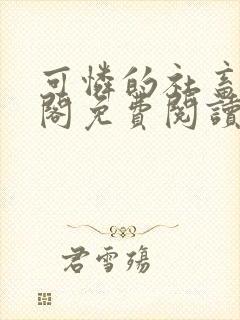 可憐的社畜
閣免費閱讀
君雪殤